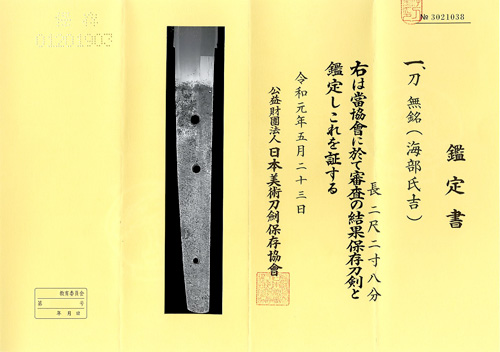 № 3021038
鑑定書
一、刀 無銘(海部氏吉)
長 二尺二寸八分
右は當協會に於て審査の結果保存刀剣と
鑑定しこれを証する
令和元年五月二十三日
公益財團法人 日本美術刀劍保存協會
保存
01201903
教育委員会
第 号
年 月 日